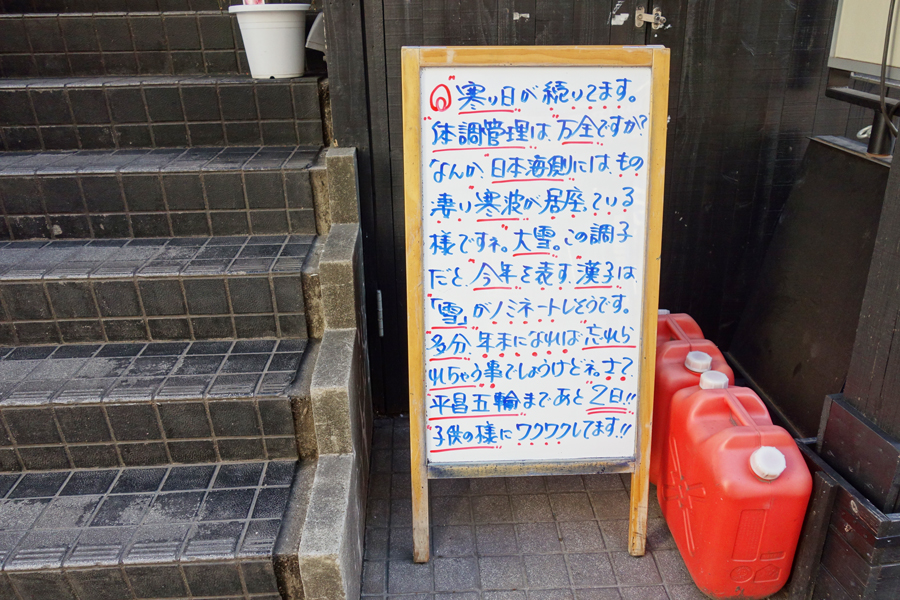 寒い日が続いてます。
体調管理は、万全ですか?
なんか、日本海側には、もの
凄い寒波が居座っている
様ですネ。大雪。この調子
だと、今年を表す、漢字は、
「雪」がノミネートしそうです。
多分、年末になれば、忘れら
れちゃう事でしょうけどネ。さて
平昌五輪まであと2日!!
子供の様にワクワクしてます!!